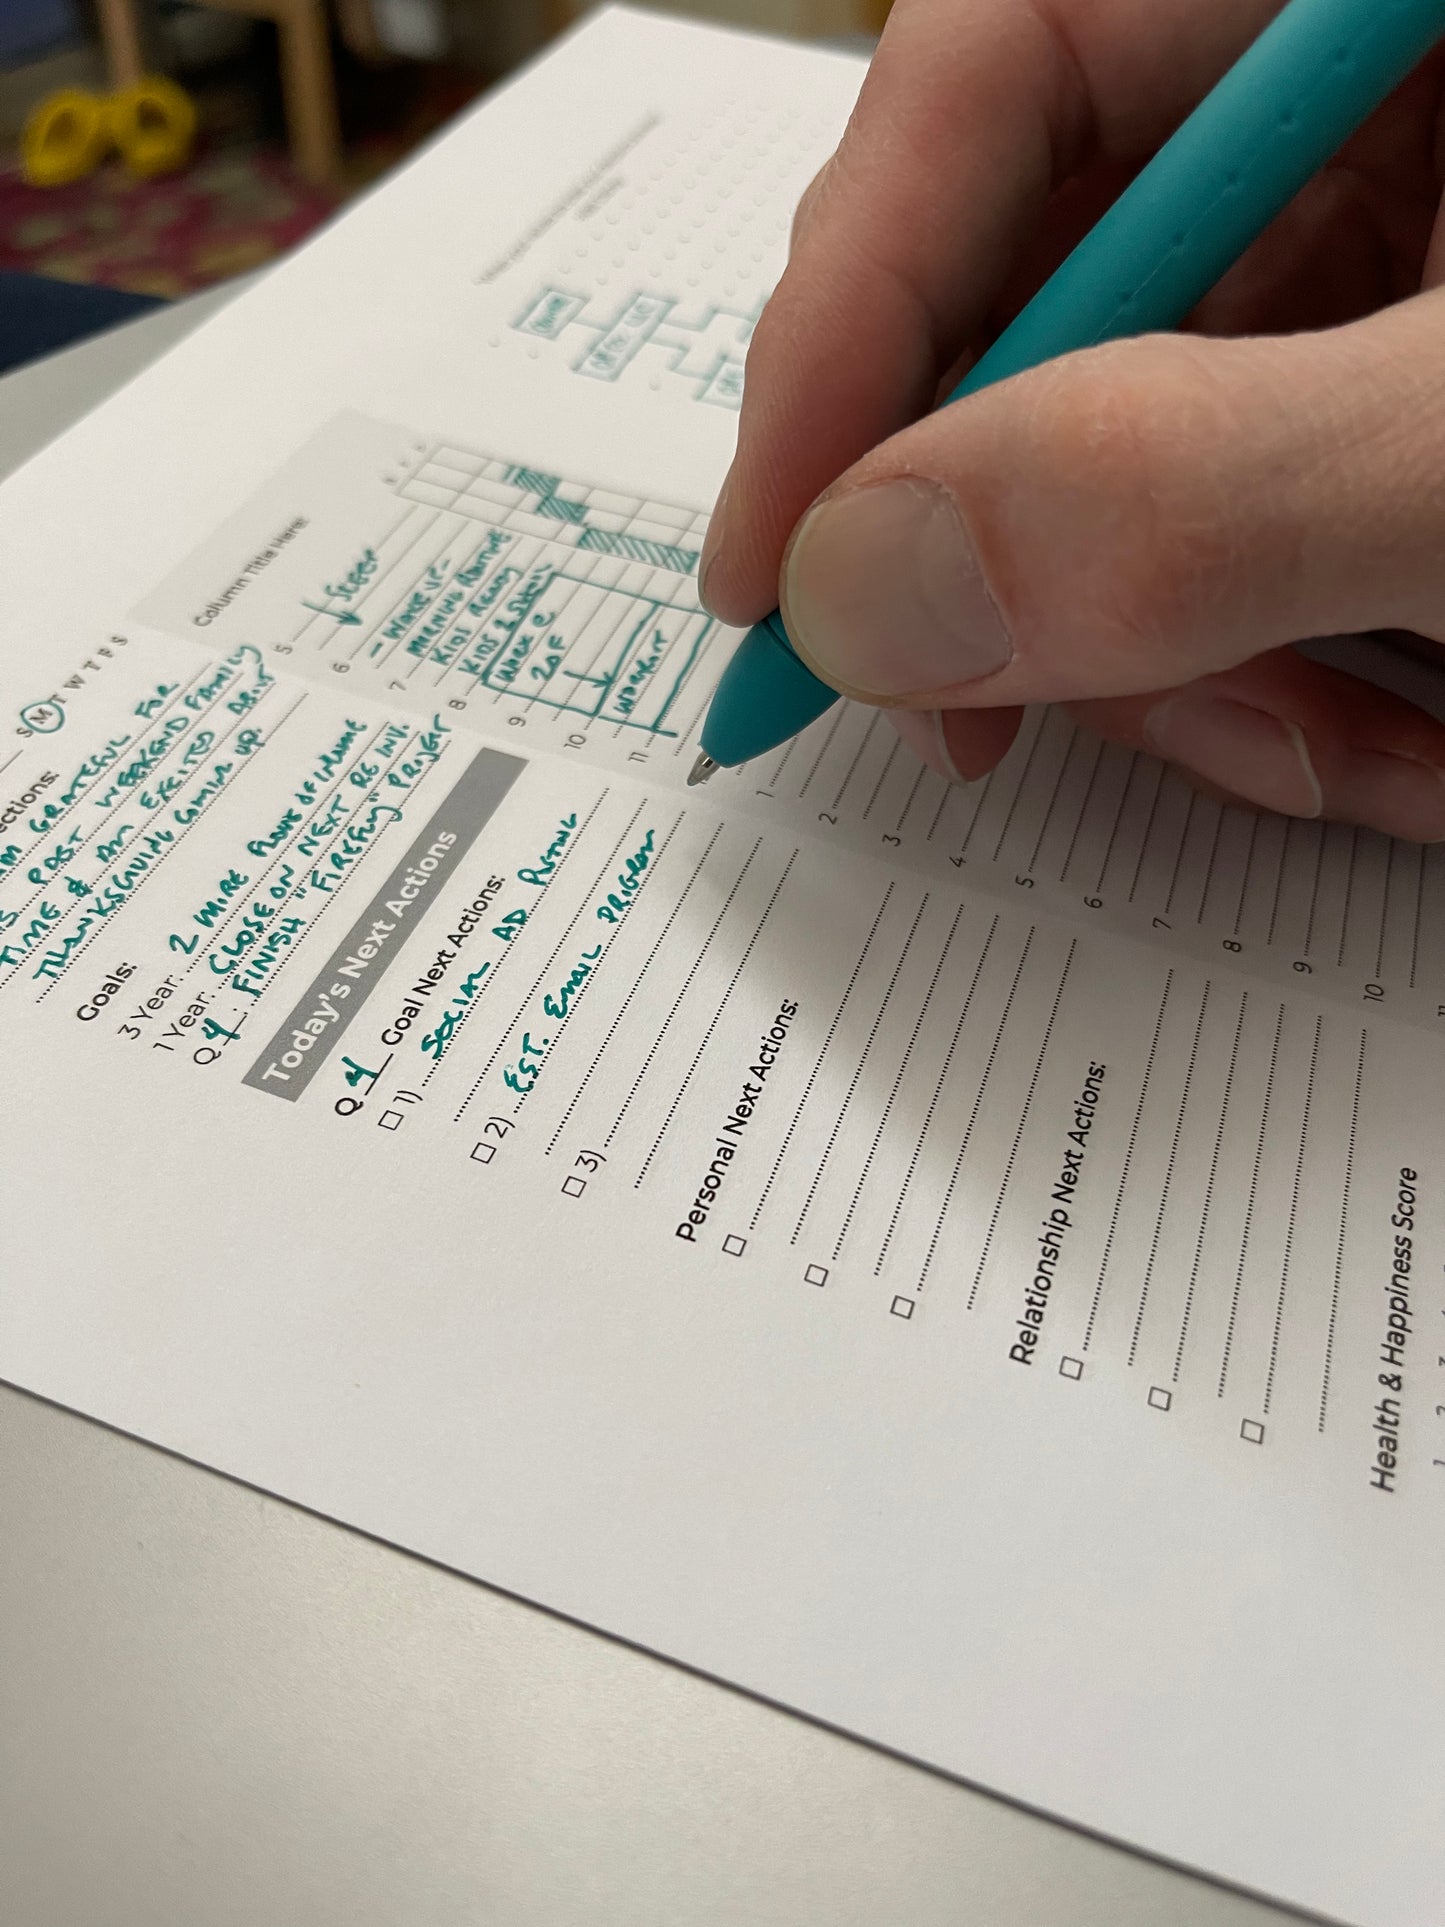 S M T W T F S
GRATEFUL FOR
PAST WEEKEND FAMILY
TIME & AM EXCITED ABOUT
THANKSGIVING COMIN UP.
Goals:
3 Year: 2 MORE
1 Year: CLOSE ON NEXT RE INV.
Q 4 : FINISH "FIREFLY" PROJECT
Today's Next Actions
Q 4 Goal Next Actions:
1) SOCIAL AD POSTING
2) EST. EMAIL PROGRAM
3)
Personal Next Actions:
Relationship Next Actions:
Health & Happiness Score
Column Title Here:
5
SLEEP
6
- WAKE UP -
7 MORNING ROUTINE
KIDS READY
8 KIDS 2 SCHOOL
WORK @
9
10
WORKOUT
11
1
2
3
4
5
6
7
8
9
10
11